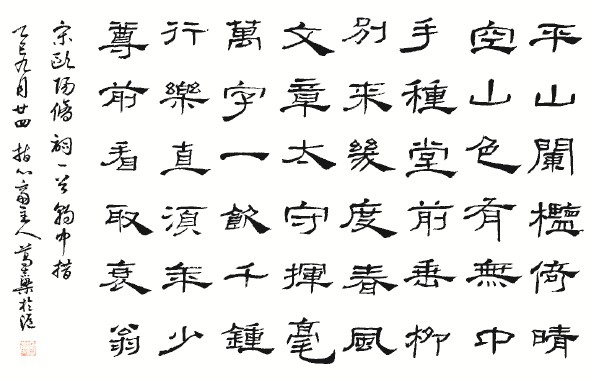 平山闌檻倚晴
空山色有無中
手種堂前垂柳
別来幾度春風
文章太守揮毫
萬字一飲千鍾
行樂直須年少
尊前看取衰翁
宋歐陽脩詞一首
乙巳九月廿四 主人 於滬